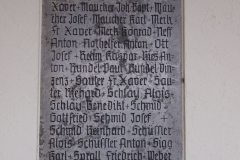 Xaver + Maucher Joh. Bapt. Mau
cher Josef + Maucher Karl + Merk
Fr. Xaver + Merk Konrad + Neff
Anton + Nothelfer Anton + Ott
Josef + Kaspar +
Anton + Rundel Paul + Rundel Vin
zenz + Sauter Fr. Xaver + Sau
ter Richard + Schlay Alois
Schlay Benedikt + Schmid
Gottfried + Schmid Josef +
+ Schmid Reinhard + Schüssler
Alois + Schüssler Anton + Sigg
Karl + Sproll Friedrich + Weber